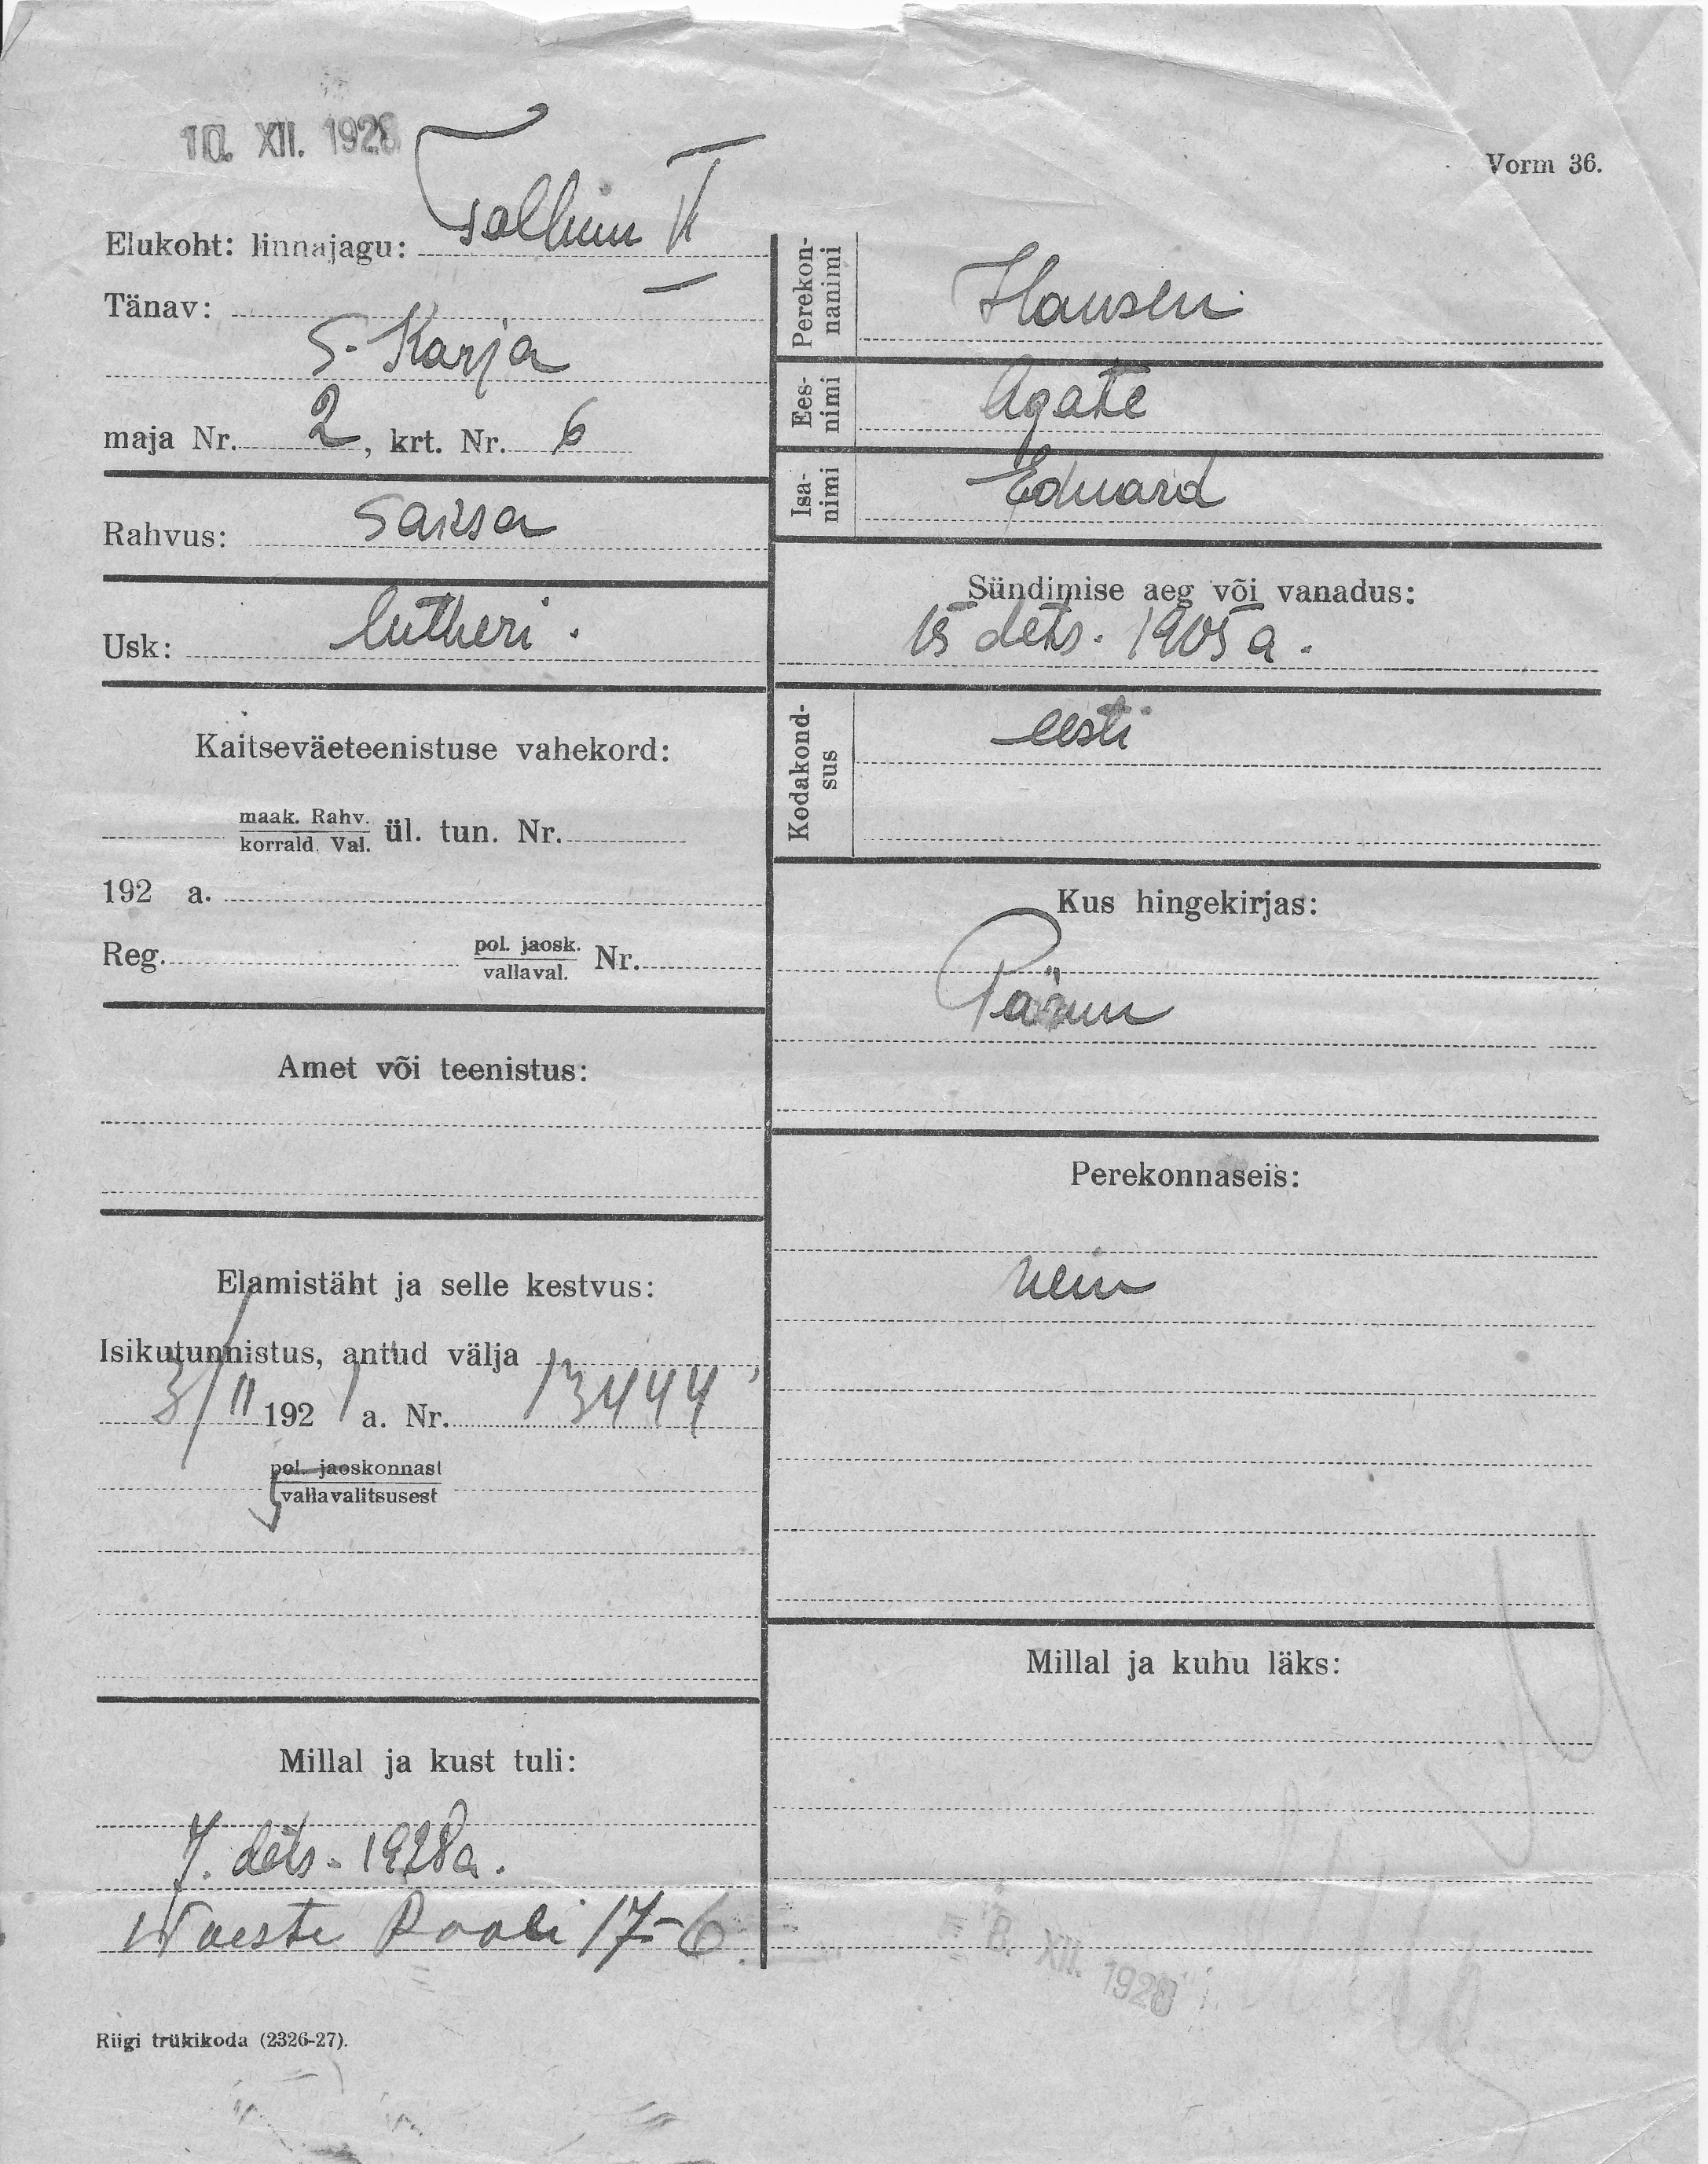 10. XII. 1928
Vorm 36.
Elukoht: linnajagu: Tallinn II
Tänav:
S. Karja
maja Nr. 2, krt. Nr. 6
Rahvus: saksa
Usk: lutheri.
Kaitseväeteenistuse vahekord:
maak. Rahv.
korrald. Val. ül. tun. Nr.
192 a.
Reg. pol. jaosk.
vallaval. Nr.
Amet või teenistus:
Elamistäht ja selle kestvus:
Isikutunnistus, antud välja
3/II 1921 a. Nr. 13444
pol. jaoskonnast
vallavalitsusest
Millal ja kust tuli:
7. dets. 1928 a.
17-6
Riigi trükikoda (2326-27).
Perekon-
nanimi
Hansen
Ees-
nimi
Agate
Isa-
nimi
Eduard
Sündimise aeg või vanadus:
15 dets. 1905 a.
Kodakond-
sus
eesti
Kus hingekirjas:
Pärnu
Perekonnaseis:
neiu
Millal ja kuhu läks:
8. XII. 1928